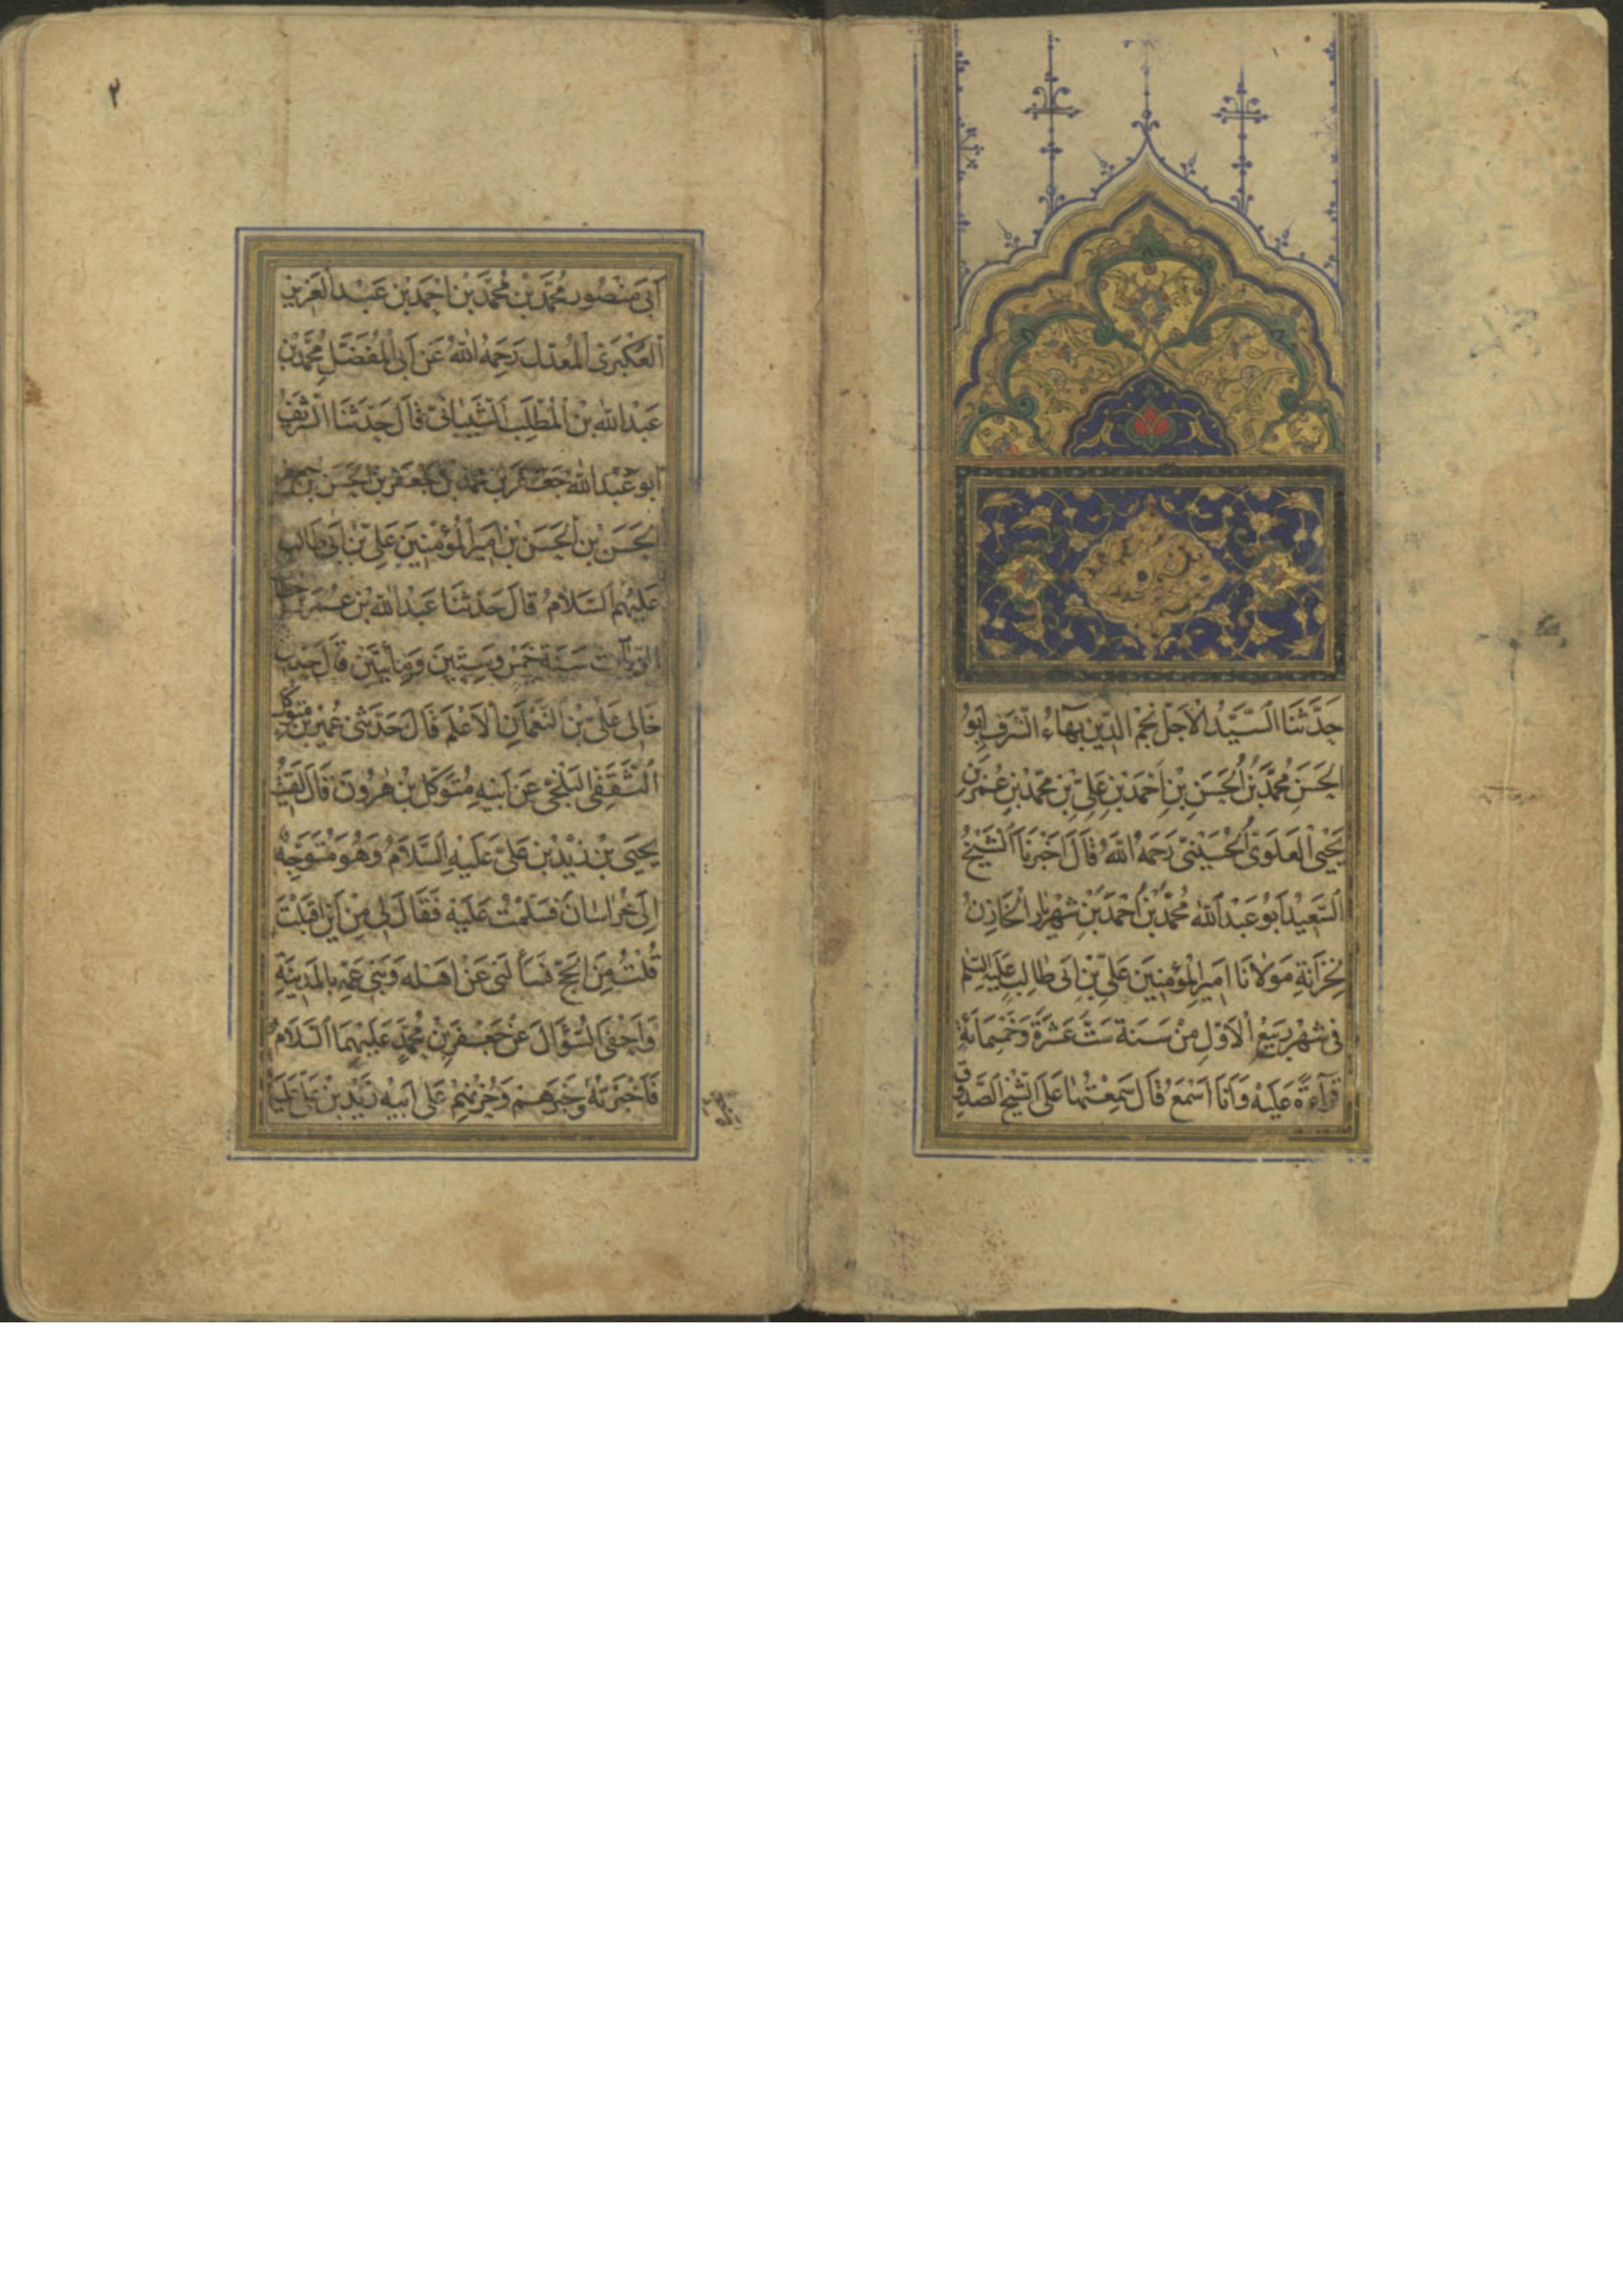 حَدَّثَنَا السَّيِّدُ الْاَجَلُّ نَجْمُ الدِّينِ بَهَآءُ الشَّرَفِ اَبُو
الْحَسَنِ مُحَمَّدُ بْنُ الْحَسَنِ بْنِ اَحْمَدَ بْنِ عَلِيِّ بْنِ مُحَمَّدِ بْنِ عُمَرَ بْنِ
يَحْيَى الْعَلَوِىُّ الْحُسَيْنِىُّ رَحِمَهُ اللّٰهُ قَالَ اَخْبَرَنَا الشَّيْخُ
السَّعِيْدُ اَبُو عَبْدِ اللّٰهِ مُحَمَّدُ بْنُ اَحْمَدَ بْنِ شَهْرِيَارَ الْخَازِنُ
لِخَزَانَةِ مَوْلَانَا اَمِيرِ الْمُؤْمِنِينَ عَلِىِّ بْنِ اَبِى طَالِبٍ عَلَيْهِ السَّلَم
فِى شَهْرِ رَبِيعِ الْاَوَّلِ مِنْ سَنَةِ سِتَّ عَشْرَةَ وَخَمْسِمَائَةٍ
قِرَآءَةً عَلَيْهِ وَاَنَا اَسْمَعُ قَالَ سَمِعْتُهَا عَلَى الشَّيْخِ الصَّدُوقِ
٢
اَبِى مَنْصُورٍ مُحَمَّدِ بْنِ مُحَمَّدِ بْنِ اَحْمَدَ بْنِ عَبْدِ الْعَزِيزِ
الْعُكْبَرِىِّ الْمُعَدَّلِ رَحِمَهُ اللّٰهُ عَنْ اَبِى الْمُفَضَّلِ مُحَمَّدِ بْنِ
عَبْدِ اللّٰهِ بْنِ الْمُطَّلِبِ الشَّيْبَانِىِّ قَالَ حَدَّثَنَا الشَّرِيفُ
اَبُو عَبْدِ اللّٰهِ جَعْفَرُ بْنُ مُحَمَّدِ بْنِ جَعْفَرِ بْنِ الْحَسَنِ بْنِ جعفر
الْحَسَنِ بْنِ الْحَسَنِ بْنِ اَمِيرِ الْمُؤْمِنِينَ عَلِىِّ بْنِ اَبِى طَالِبٍ
عَلَيْهِمُ السَّلَامُ قَالَ حَدَّثَنَا عَبْدُ اللّٰهِ بْنُ عُمَرَ بْنِ خطاب
الزَّيَّاتُ سَنَةَ خَمْسٍ وَسِتِّينَ وَمِائَتَيْنِ قَالَ حَدَّثَنِى
خَالِى عَلِىُّ بْنُ النُّعْمَانِ الْاَعْلَمُ قَالَ حَدَّثَنِى عُمَيْرُ بْنُ مُتَوَكِّل
الثَّقَفِىُّ الْبَلْخِىُّ عَنْ اَبِيهِ مُتَوَكِّلِ بْنِ هٰرُونَ قَالَ لَقِيتُ
يَحْيَى بْنَ زَيْدِ بْنِ عَلِىٍّ عَلَيْهِ السَّلَامُ وَهُوَ مُتَوَجِّهٌ
اِلٰى خُرَاسَانَ فَسَلَّمْتُ عَلَيْهِ فَقَالَ لِى مِنْ اَيْنَ اَقْبَلْتَ
قُلْتُ مِنَ الْحَجِّ فَسَأَلَنِى عَنْ اَهْلِهِ وَبَنِى عَمِّهِ بِالْمَدِينَةِ
وَاَحْفَى السُّؤَالَ عَنْ جَعْفَرِ بْنِ مُحَمَّدٍ عَلَيْهِمَا السَّلَامُ
فَاَخْبَرْتُهُ بِخَبَرِهِمْ وَحُزْنِهِمْ عَلَى اَبِيهِ زَيْدِ بْنِ عَلِىٍّ عَلَيْه